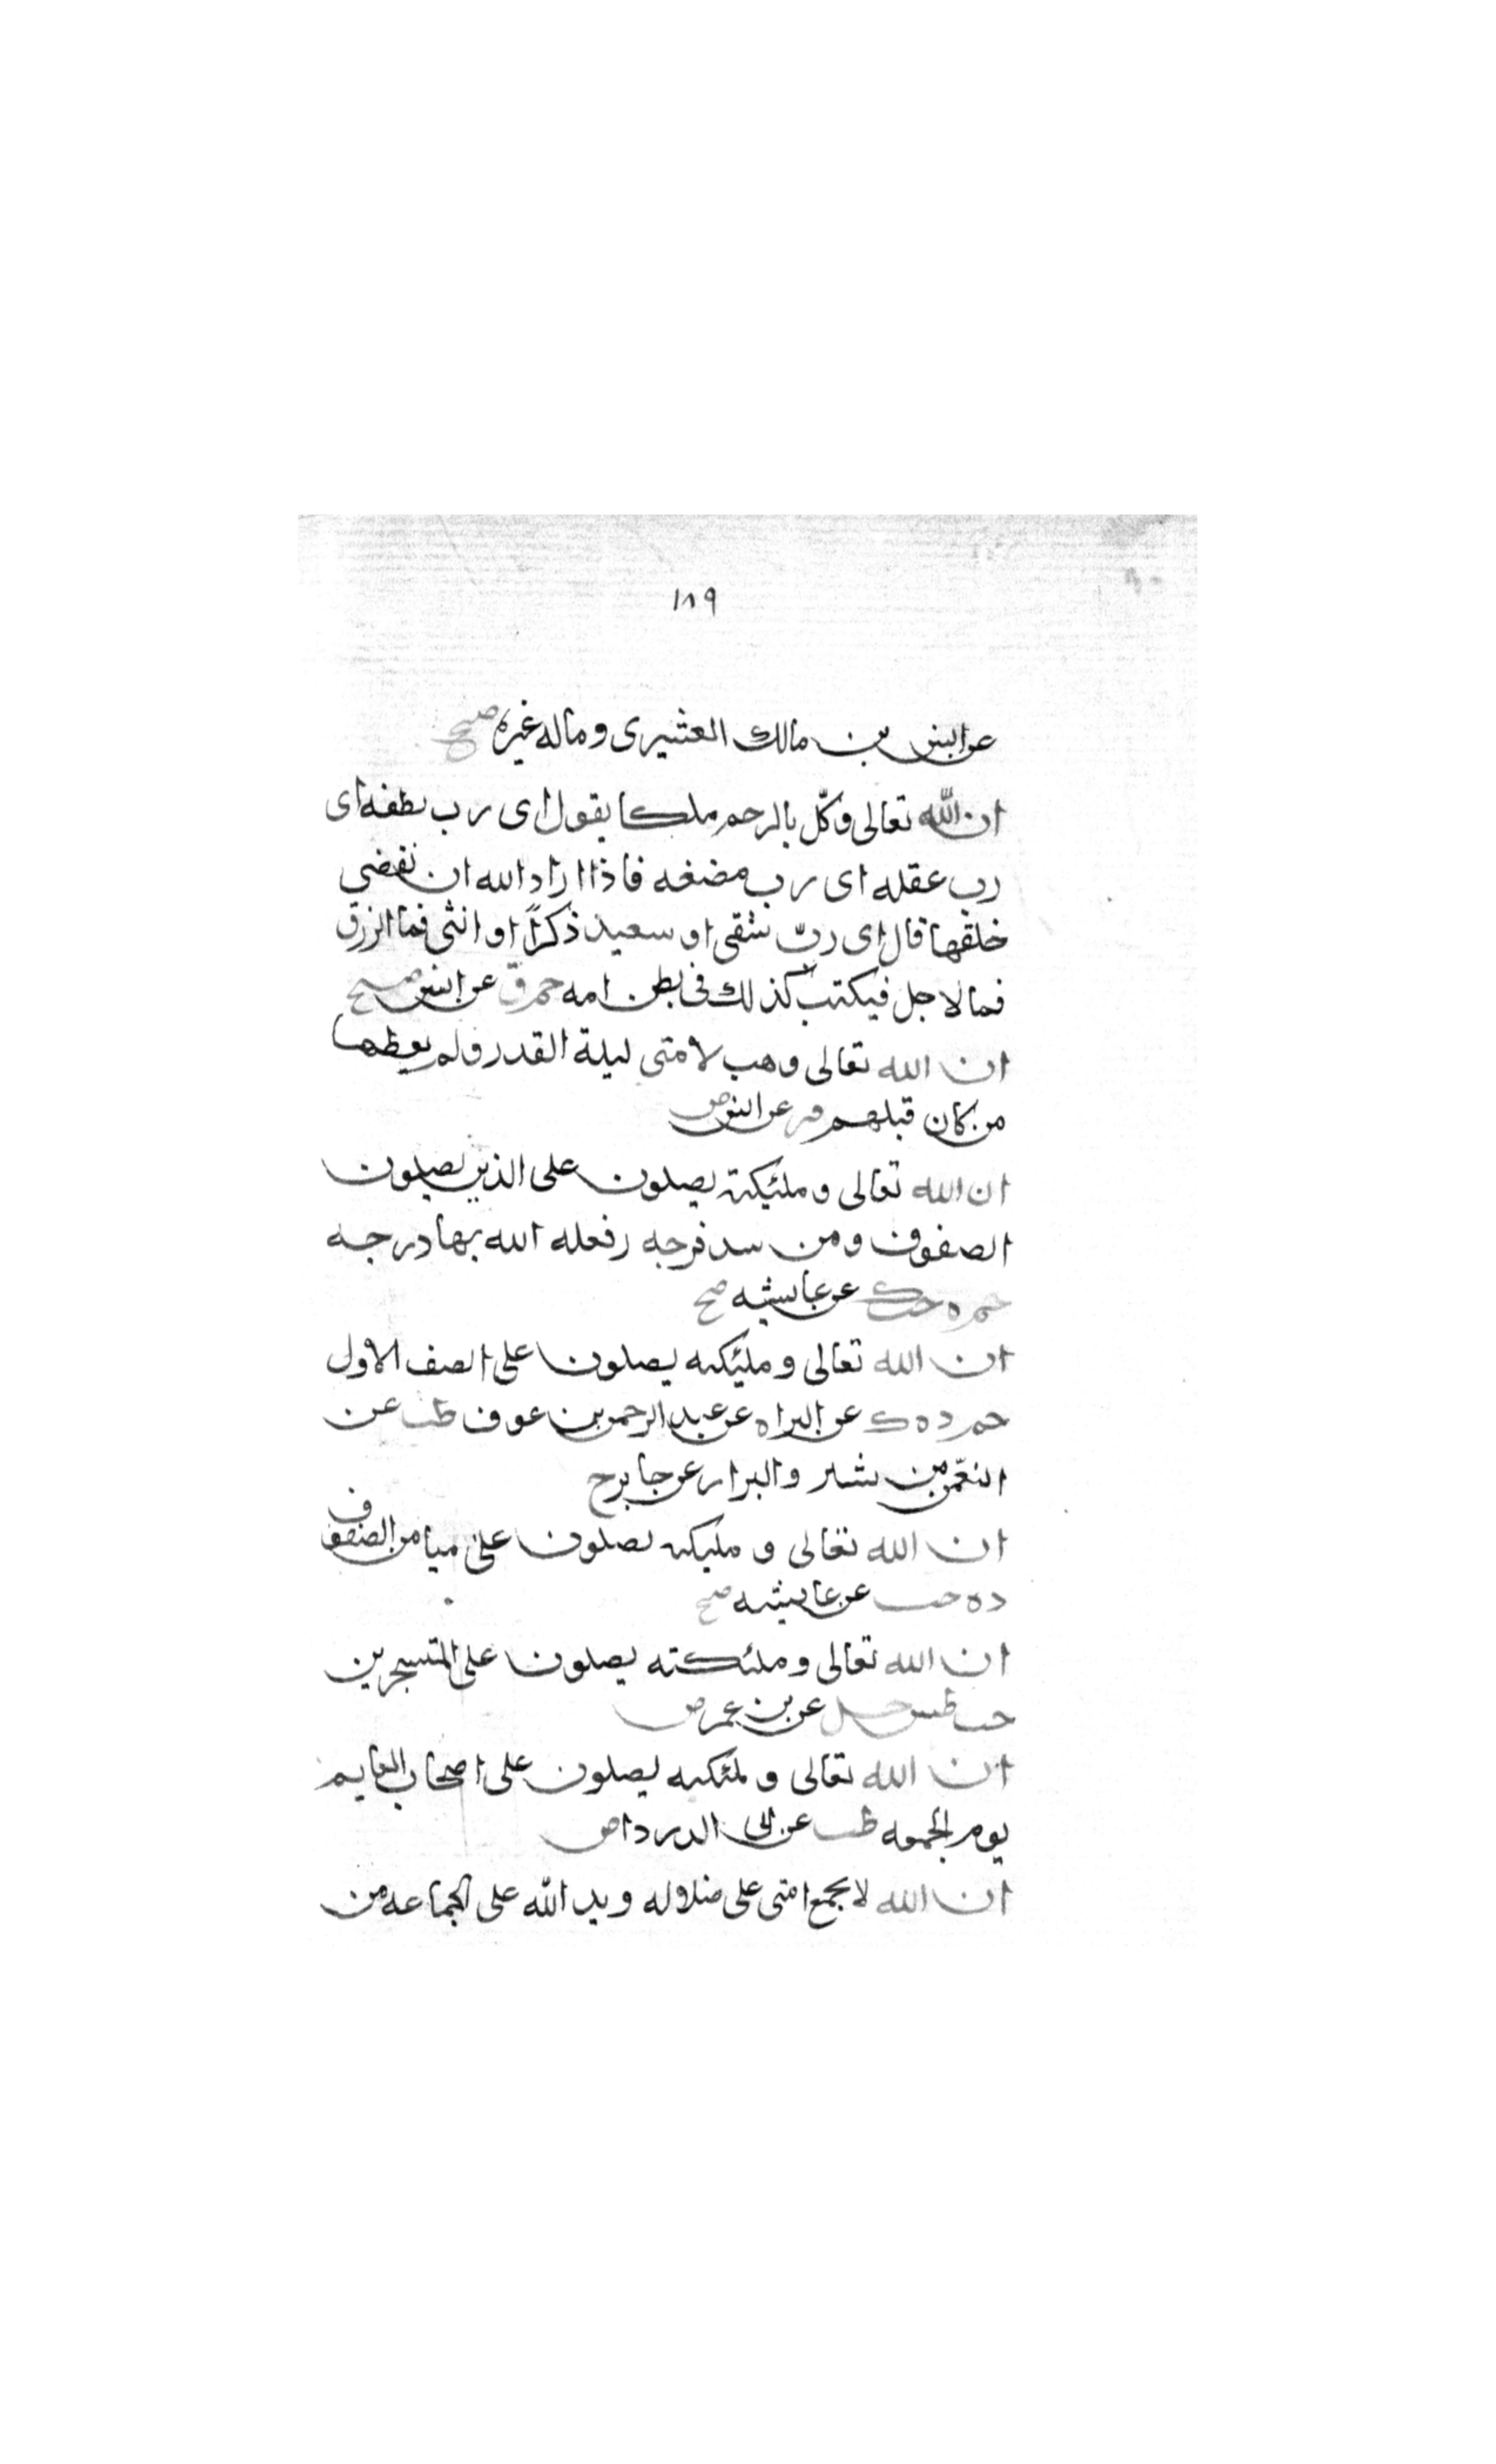 ١٨٩
عن انس بن مالك القشيرى وماله غيره صحيح
ان الله تعالى وكّل بالرحم ملكا يقول اى رب نطفه اى
رب علقه اى رب مضغه فاذا اراد الله ان يقضى
خلقها قال اى ربّ شقى او سعيد ذكراً او انثى فما الرزق
فما لاجل فيكتب كذلك فى بطن امه حم ق عن انس صحيح
ان الله تعالى وهب لامتى ليلة القدر ولم يعطها
من كان قبلهم فر عن انس ض
ان الله تعالى وملئيكته يصلون على الذين يصلون
الصفوف ومن سد فرجه رفعله الله بها درجه
حم ه حب ك عن عايشه صح
ان الله تعالى ومليئكته يصلون على الصف الاول
حم د ه ك عن البرا ه عن عبد الرحمن بن عوف طب عن
النعمن بن بشير والبزار عن جابر ح
ان الله تعالى و مليكته يصلون على ميامن الصفوف
د ه حب عن عايشه صح
ان الله تعالى وملئكته يصلون على المتسحرين
حب طس حل عن بن عمر ض
ان الله تعالى و لمئكته يصلون على اصحاب العمايم
يوم الجمعه طب عن ابى الدرداء ض
ان الله لا يجمع امتى على ضلاله ويد الله على الجماعه من